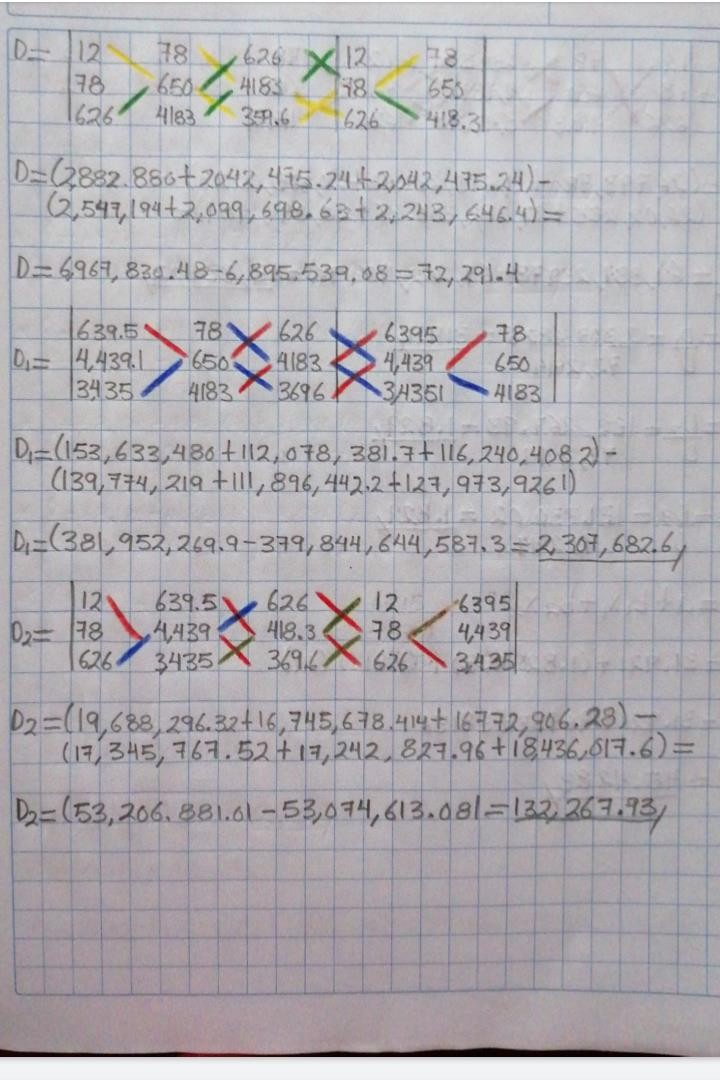 D= |12 78 626 |12 78|
78 650 4183 78 650
626 4183 359.6 626 418.3
D=(2,882.880+2042,475.24+2,042,475.24)-
(2,547,194+2,099,698.63+2,243,646.4)=
D=6,967,830.48-6,895.539,08=72,291.4
|639.5 78 626 | 6395 78|
D1= 4,439.1 650 4183 4,439 650
3,435 4183 3696 3,4351 4183
D1=(153,633,480+112,078,381.7+116,240,408 2)-
(139,774,219+111,896,442.2+127,973,926 1)
D1=(381,952,269.9-379,844,644,587.3=2,307,682.6,
|12 639.5 626 12 6395|
D2= 78 4,439 418.3 78 4,439
626 3,435 369.6 626 3,435
D2=(19,688,296.32+16,745,678.414+16772,906.28)-
(17,345,767.52+17,242,827.96+18,436,017.6)=
D2=(53,206.881.01-53,074,613.081=132,267.93,